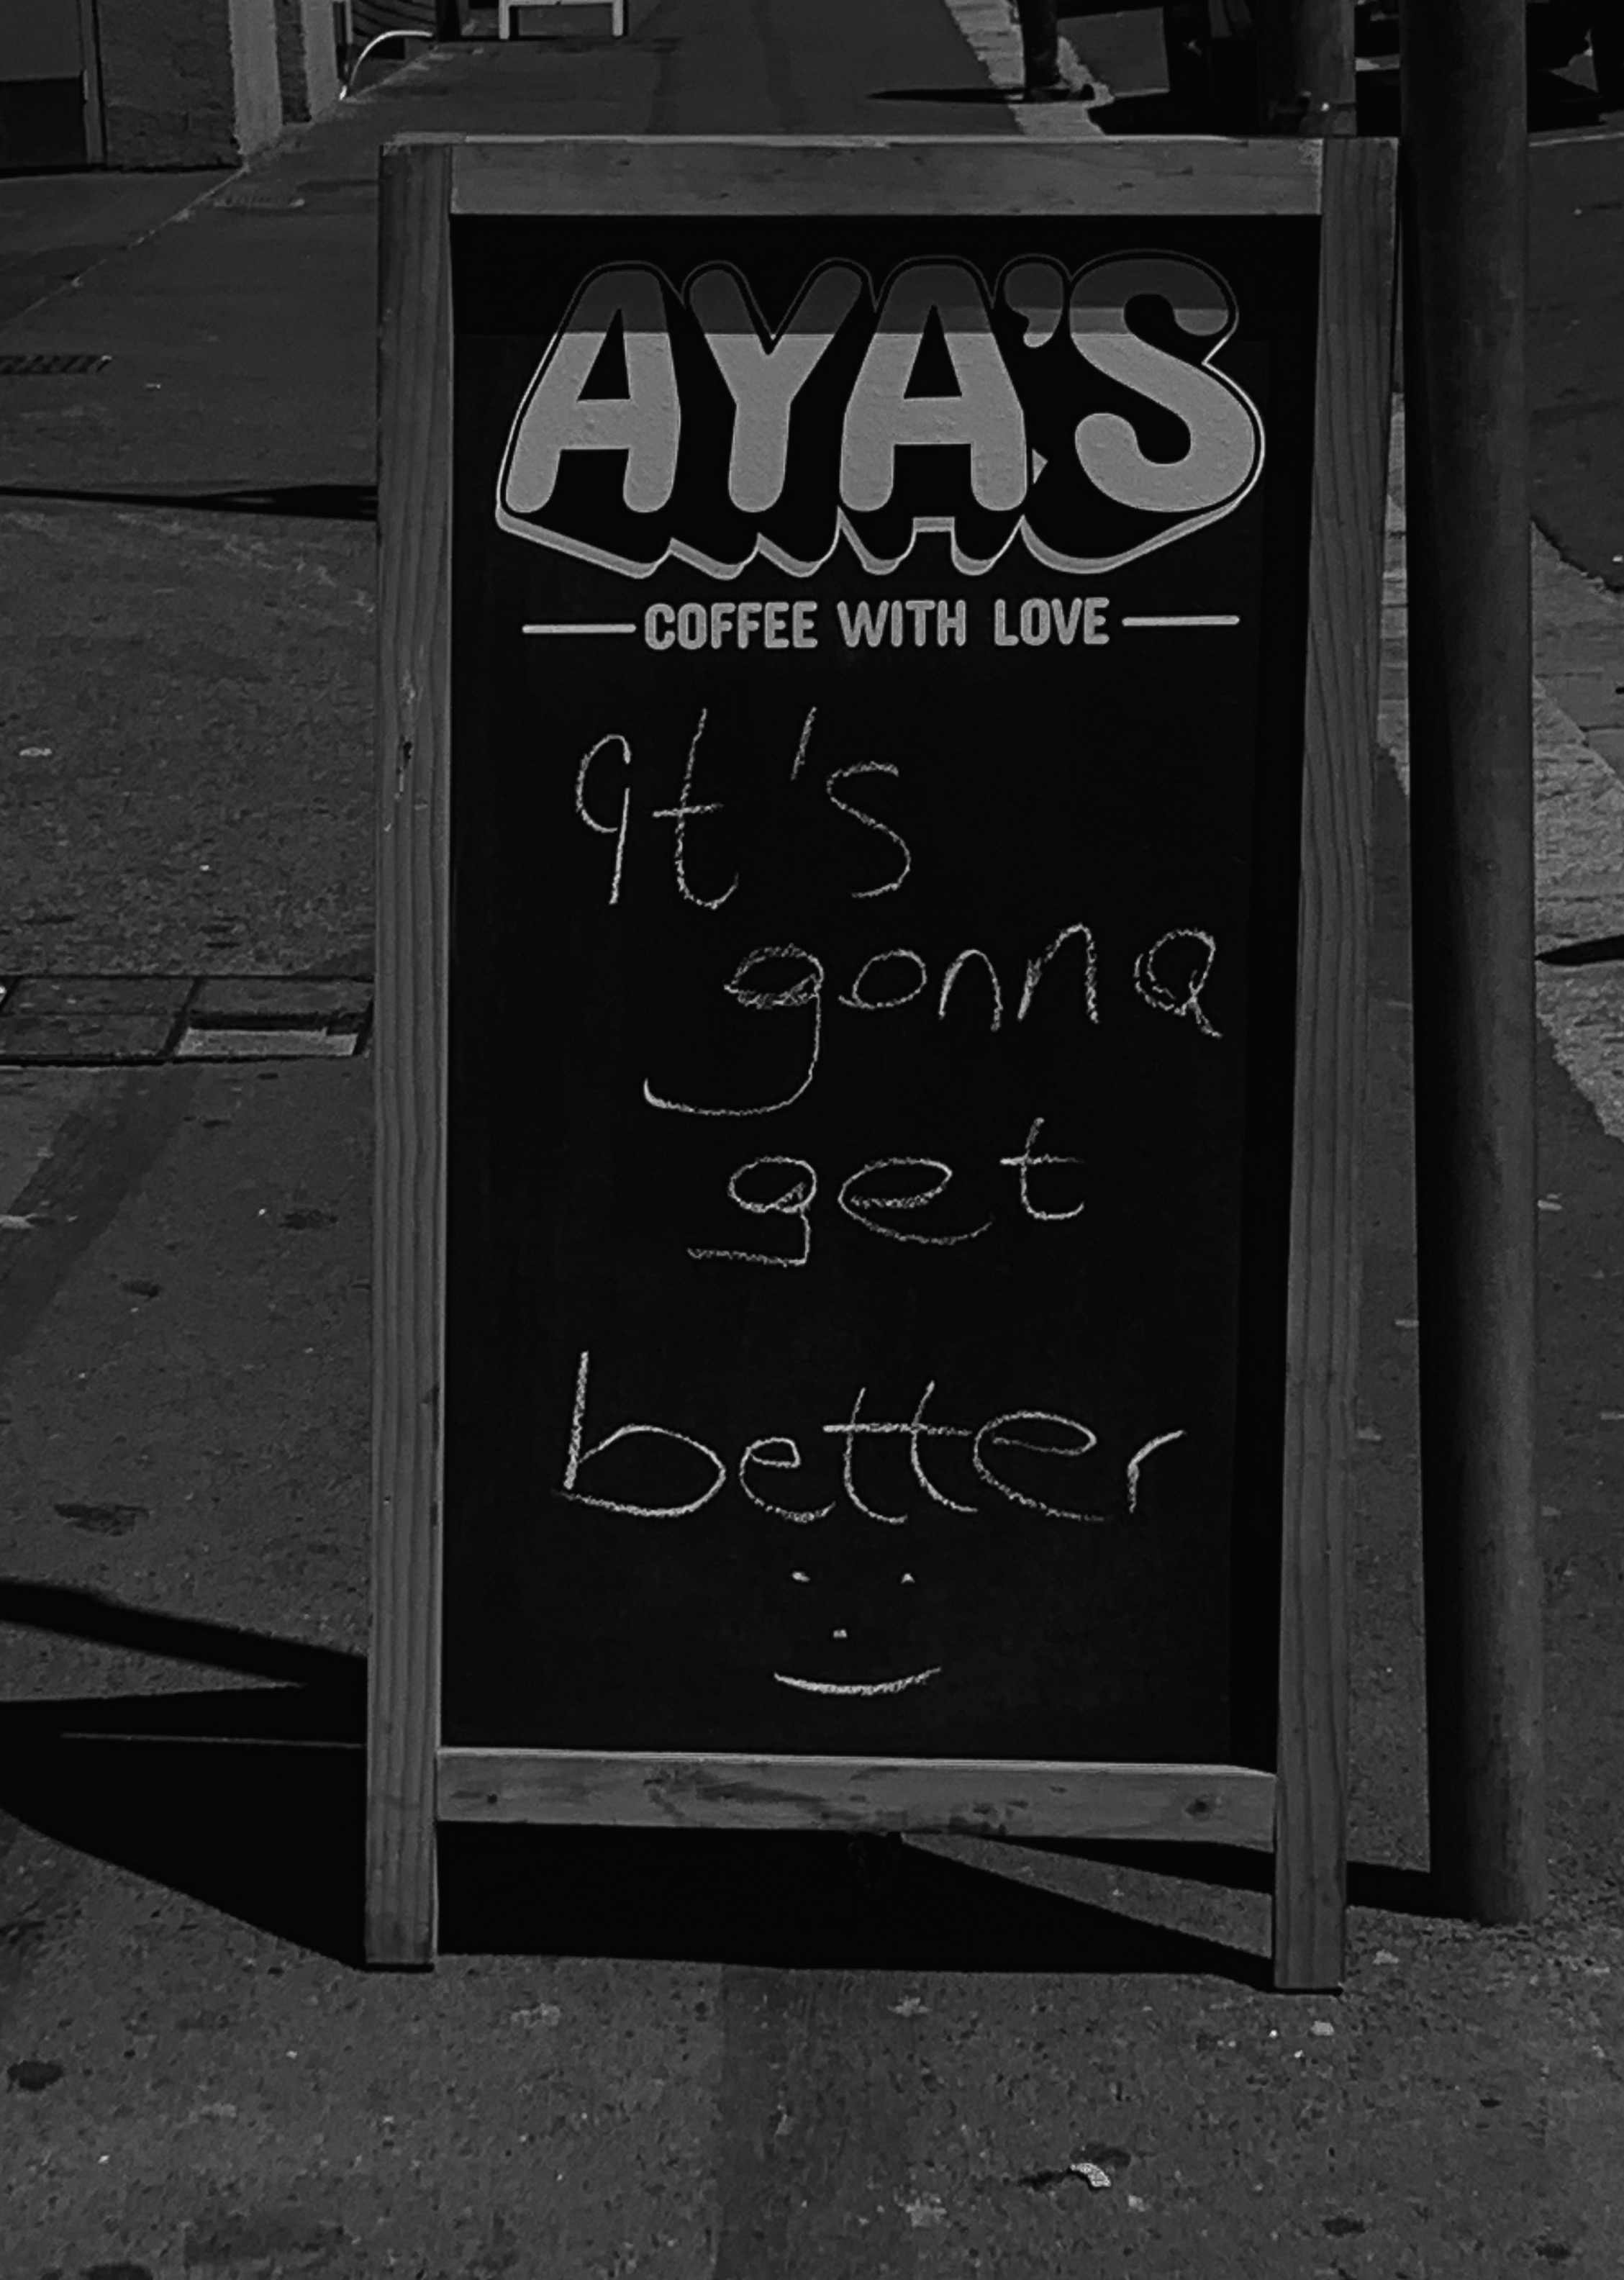 AYA'S
COFFEE WITH LOVE
It's
gonna
get
better